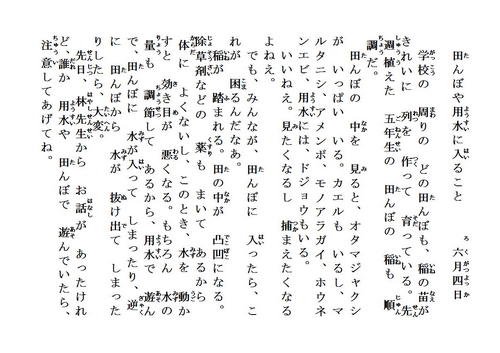 田んぼや用水に入ること　六月四日
学校の　周りの　どの田んぼも、稲の苗が
きれいに　列を　作って　育っている。先
週植えた　五年生の　田んぼの　稲も　順
調だ。
田んぼの　中を　見ると、オタマジャクシ
が　いっぱい　いる。カエルも　いるし、マ
ルタニシ、アメンボ、モノアラガイ、ホウネ
ンエビ、用水には、ドジョウもいる。
いいねえ。見たくなるし　捕まえたくなる
よねえ。
でも、みんなが、田んぼに　入ったら、こ
れが　困るんだなあ。
稲が　踏まれる。田の中が　凸凹になる。
除草剤などの　薬も　まいて　あるから
体に　よくないし、このとき、水を　動か
すと　効き目が　悪くなる。もちろん　水の
量も　調節して　あるから、用水で　遊ん
で、田んぼに　水が入って　しまったり、逆
に　田んぼから　水が　抜け出て　しまった
りしたら、大変。
先日、林先生から　お話が　あったけれ
ど、誰か　用水や　田んぼで　遊んでいたら、
注意してあげてね。